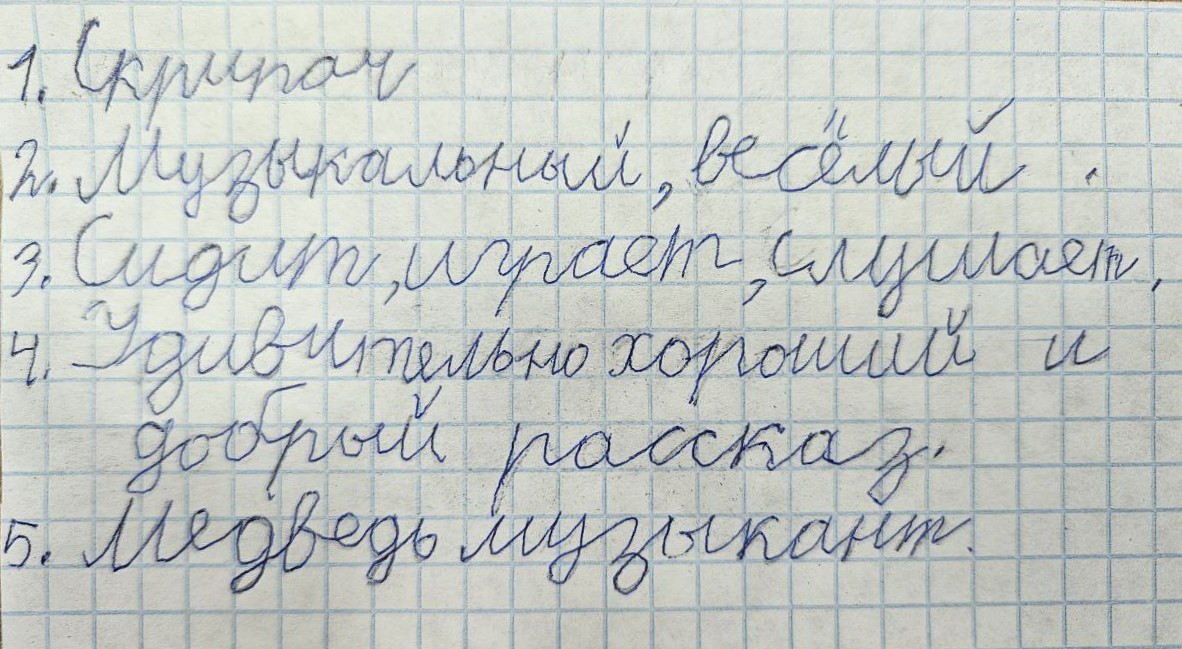 1. Скрипач
2. Музыкальный, весёлый.
3. Сидит, играет, слушает,
4. Удивительно хороший и
добрый рассказ.
5. Медведь музыкант.